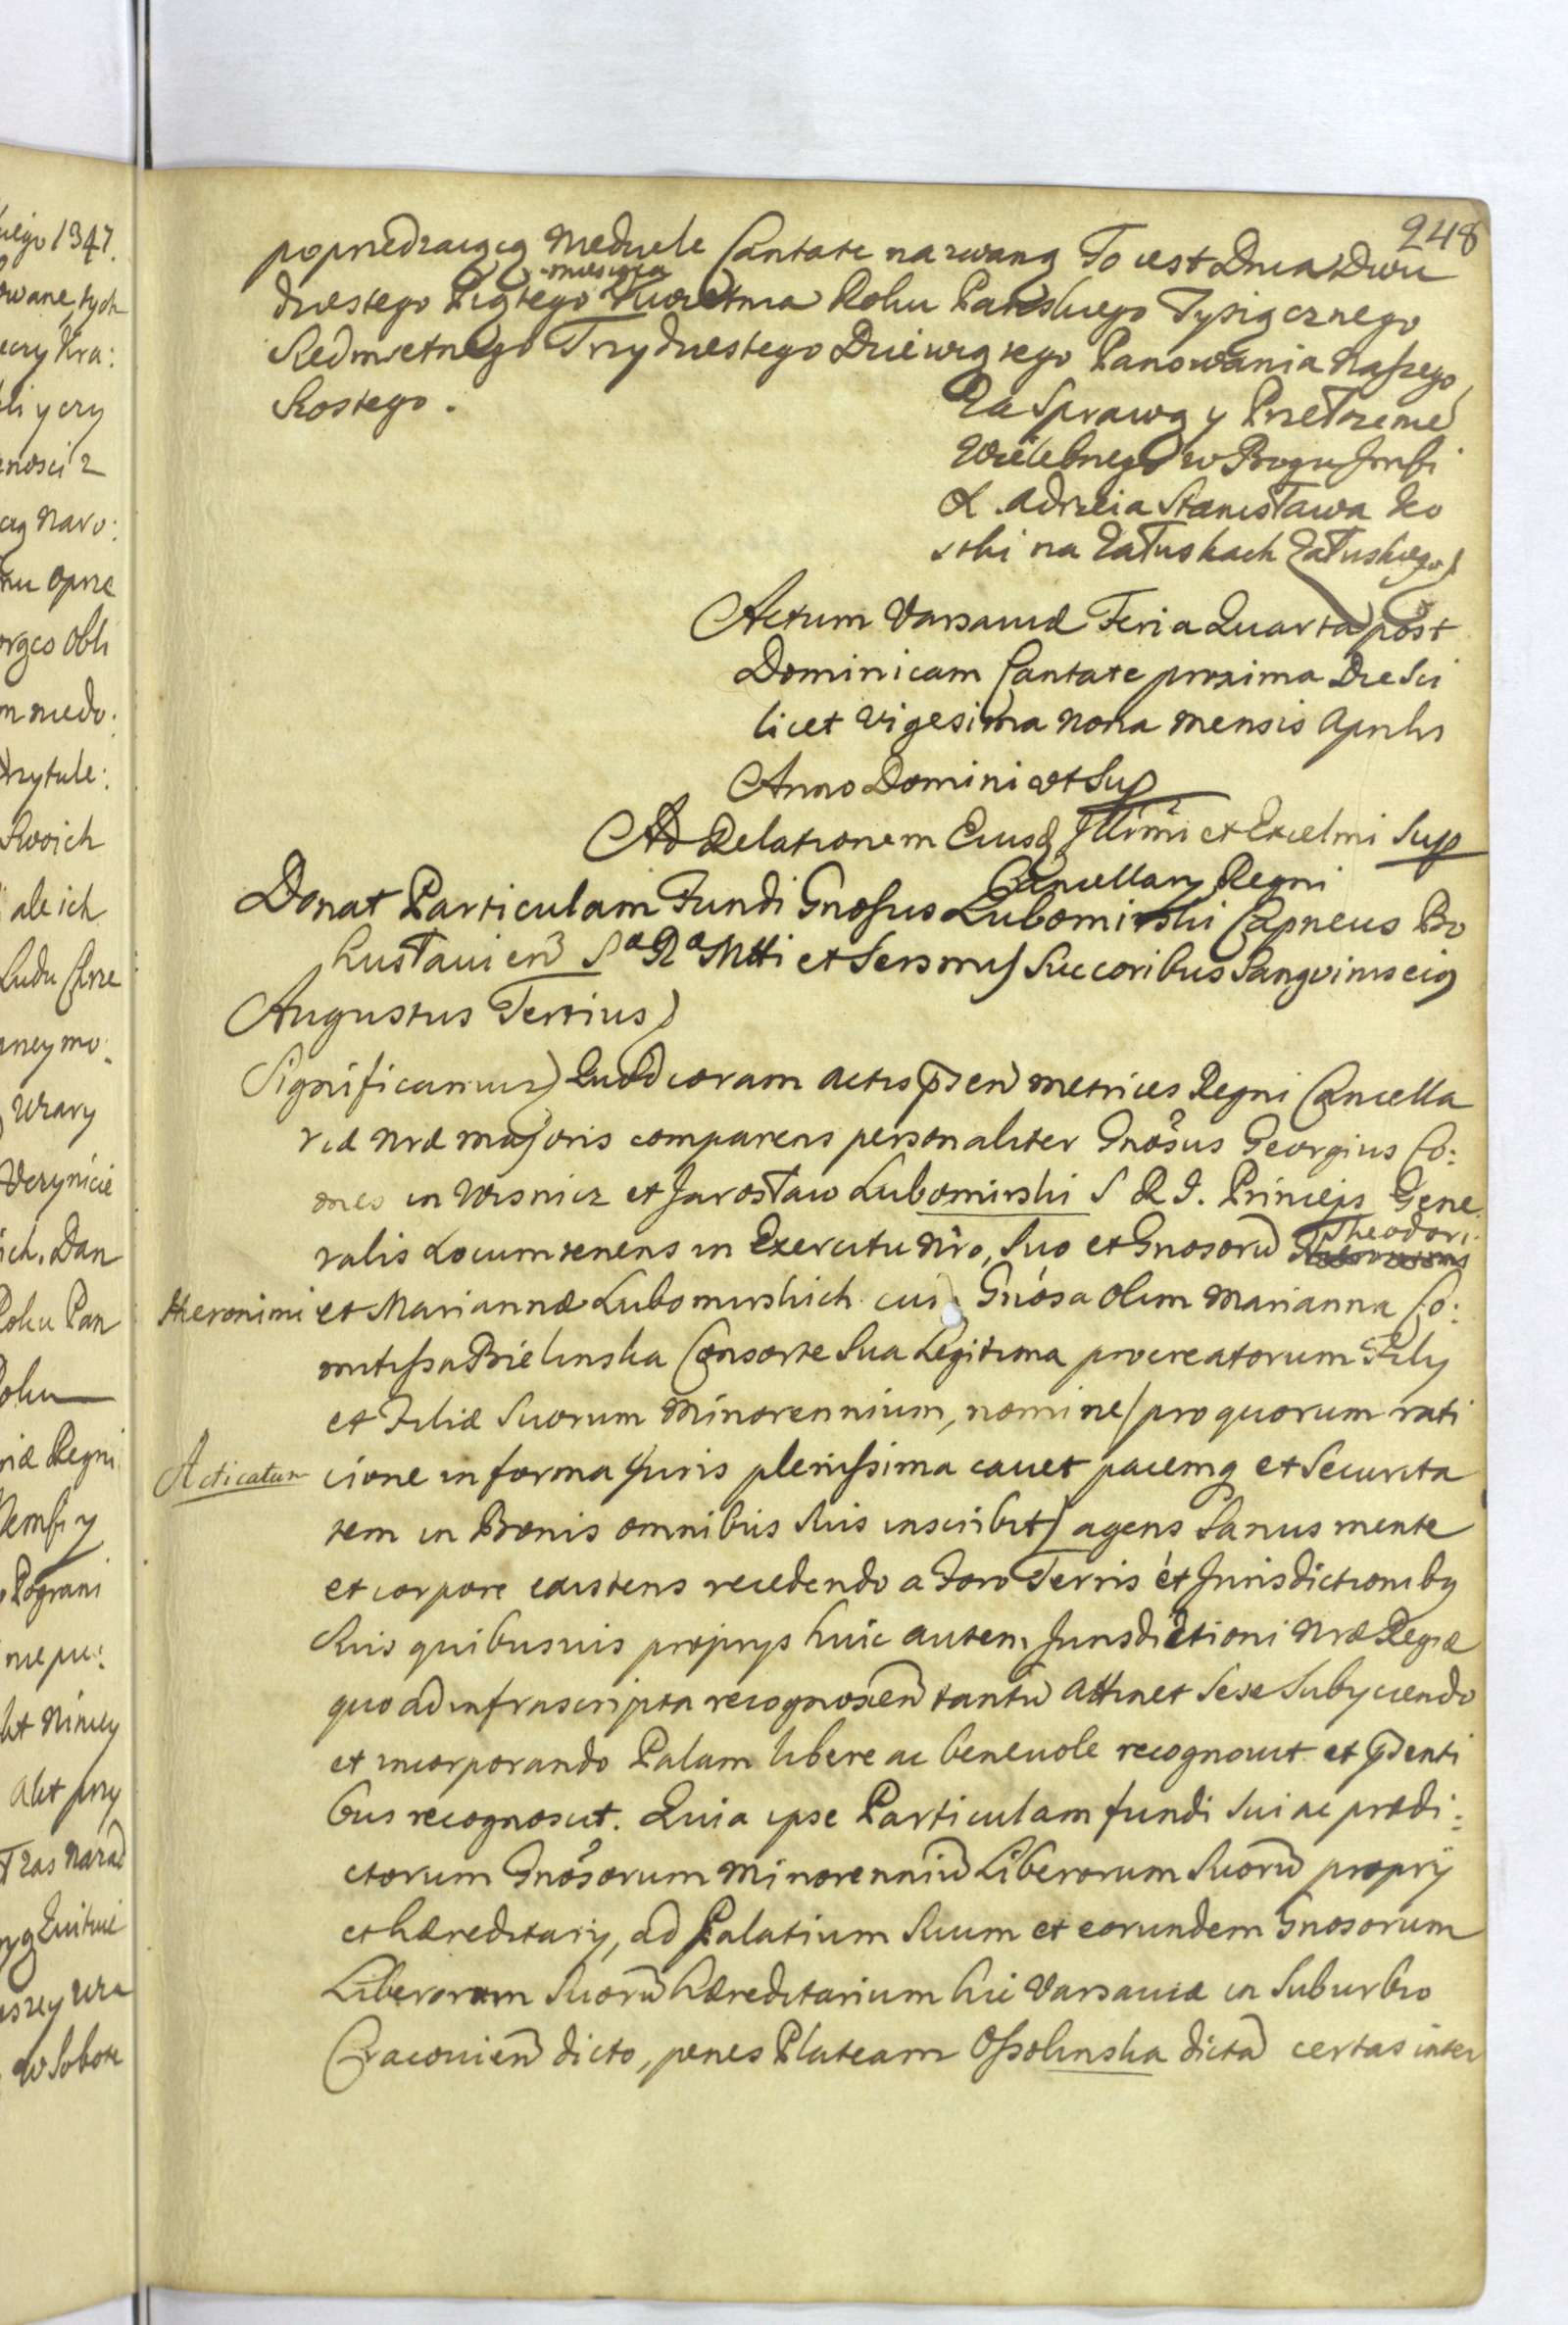 248
poprzedzaiącą Niedzielę Cantate nazwaną To iest Dnia Dwu
dziestego Piątego miesiąca Kwietnia Roku Pańskiego Tysiącznego
Siedmsetnego Trzydziestego Dziewiątego Panowania Naszego
Szostego.
Za Sprawą y Przełożeniē
Wielebnego w Bogu Jmści
X. Adrzeia Stanisława Ko
stki na Załuskach Załuskiego
Actum Varsaviæ Feria Quarta post
Dominicam Cantate proxima Die Sci
licet vigesima nona mensis Aprilis
Anno Domini vt Sup
Ad Relationem Eiusdq Illrmi et Excelmi Sup
Cancellary Regni
Donat Particulam Fundi Gnosus Lubomirski Capneus Bo
husławien Sᵃ Rᵃ Mtti et Sersmis Succoribus Sangvinis eiq
Augustus Tertius
Significamus) Quod coram actis psen metrices Regni Cancella
riæ Nræ majoris comparens personaliter Gnosus Georgius Co:
mes in Wisnicz et Jarosław Lubomirski S R I. Princeps Gene
ralis Locumtenens in Exercitu Nro, Suo et Gnosorū Theodori
Hieronimi et Mariannæ Lubomirskich cū Gnosa olim Marianna Co:
mitissa Bielinska Consorte Sua Legitima procreatorum Fily
et Filiæ Suorum Minorennium, nomine / pro quorum rati
Acticatum
cione in forma Juris plenissima cavet pacemq et Securita
tem in Bonis omnibus Suis inscribit / agens Sanus mente
et corpore existens recedendo a Foro Terris et Jurisdictionibq
Suis quibusvis proprys huic autem Jurisdictioni Nræ Regiæ
quo ad infrascripta recognoscen tantū attinet Sese Subyciendo
et incorporando Palam libere ac benevole recognovit et psenti
bus recognoscit. Quia ipse Particulam fundi Sui ac prædi:
ctorum Gnosorum Minorenniū Liberorum Suorū proprij
et hæreditarij, ad Palatium Suum et eorundem Gnosorum
Liberorum Suorū hæreditarium hic Varsaviæ in Suburbio
Cracovien dicto, penes Plateam Ossolinska dictā certas inter